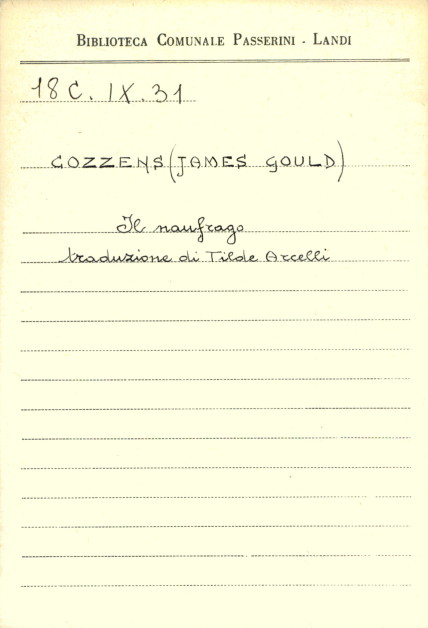 BIBLIOTECA COMUNALE PASSERINI - LANDI
18 C. IX. 31
COZZENS (JAMES GOULD)
Il naufrago
traduzione di Tilde Arcelli